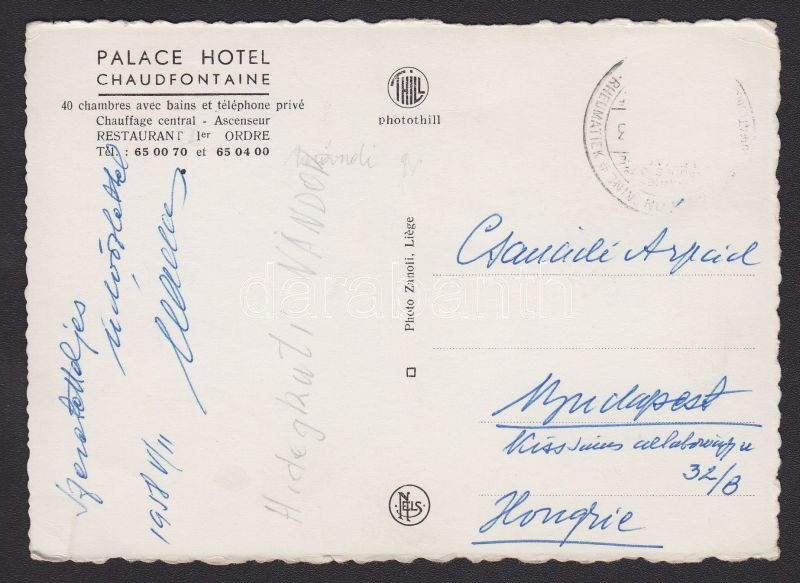 PALACE HOTEL
CHAUDFONTAINE
40 chambres avec bains et téléphone privé
Chauffage central - Ascenseur
RESTAURANT 1er ORDRE
Tél.: 65 00 70 et 65 04 00
THILL
photothill
RHEUMATIEK
Szeretetteljes
üdvözlettel
1958 V/11
Hidegkuti NÁNDOR
Photo Zanoli, Liège
NELS
Csanádi Árpád
Budapest
32/B
Hongrie
darabanth